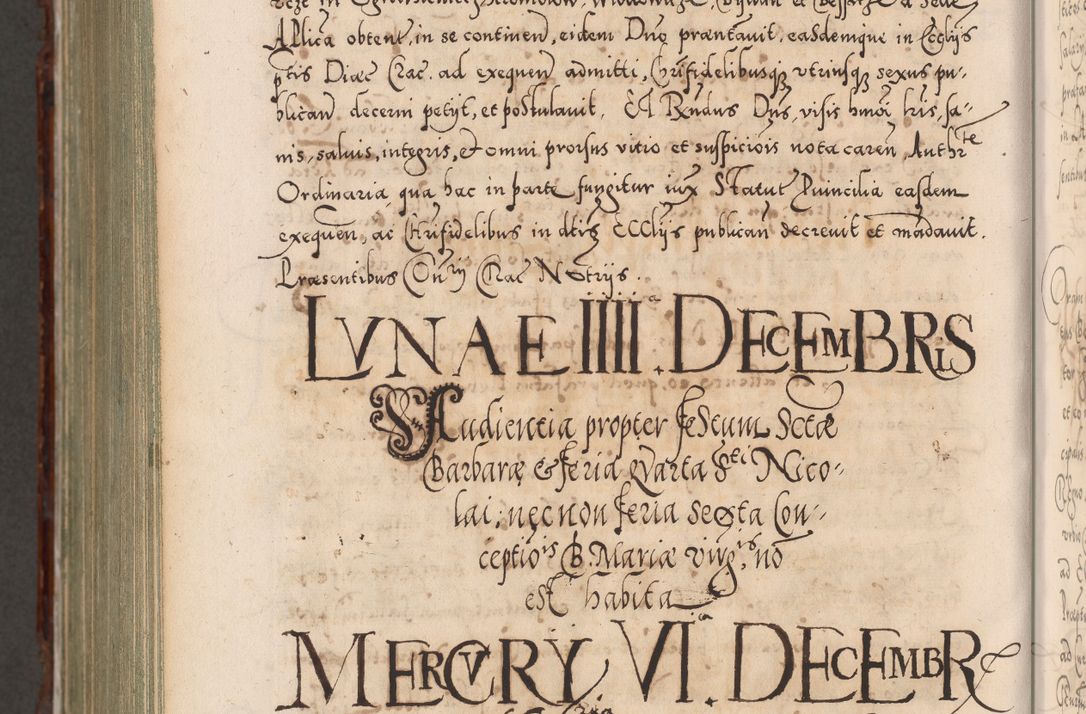 Aplica obtent, in se continen, eidem Dno præntauit, easdemque in Ecclijs
ptis Diæc Crac. ad exequen admitti, Chrifidelibusq, vtriusq, sexus pu-
blicand decerni petijt, et postulauit. Et Rndus Dns, visis hmoi lris, sa-
nis, saluis, integris, et omni prorsus vitio et suspiciois nota caren, Authrte
Ordinaria, qua hac in parte fungitur iux Statut Puincilia easdem
exequen, ac Chrifidelibus in dtis Ecclijs publican decreuit et mādauit.
Præsentibus Crac Notrijs.
LVNAE IIII.a DECEMBRIS
Audientia propter festum Sctæ
Barbaræ et feria Qvarta Scti Nico-
lai, necnon feria sexta Con-
ceptiois B. Mariæ virgis no
est habita
MERCVRY. VI.a DECEMBR